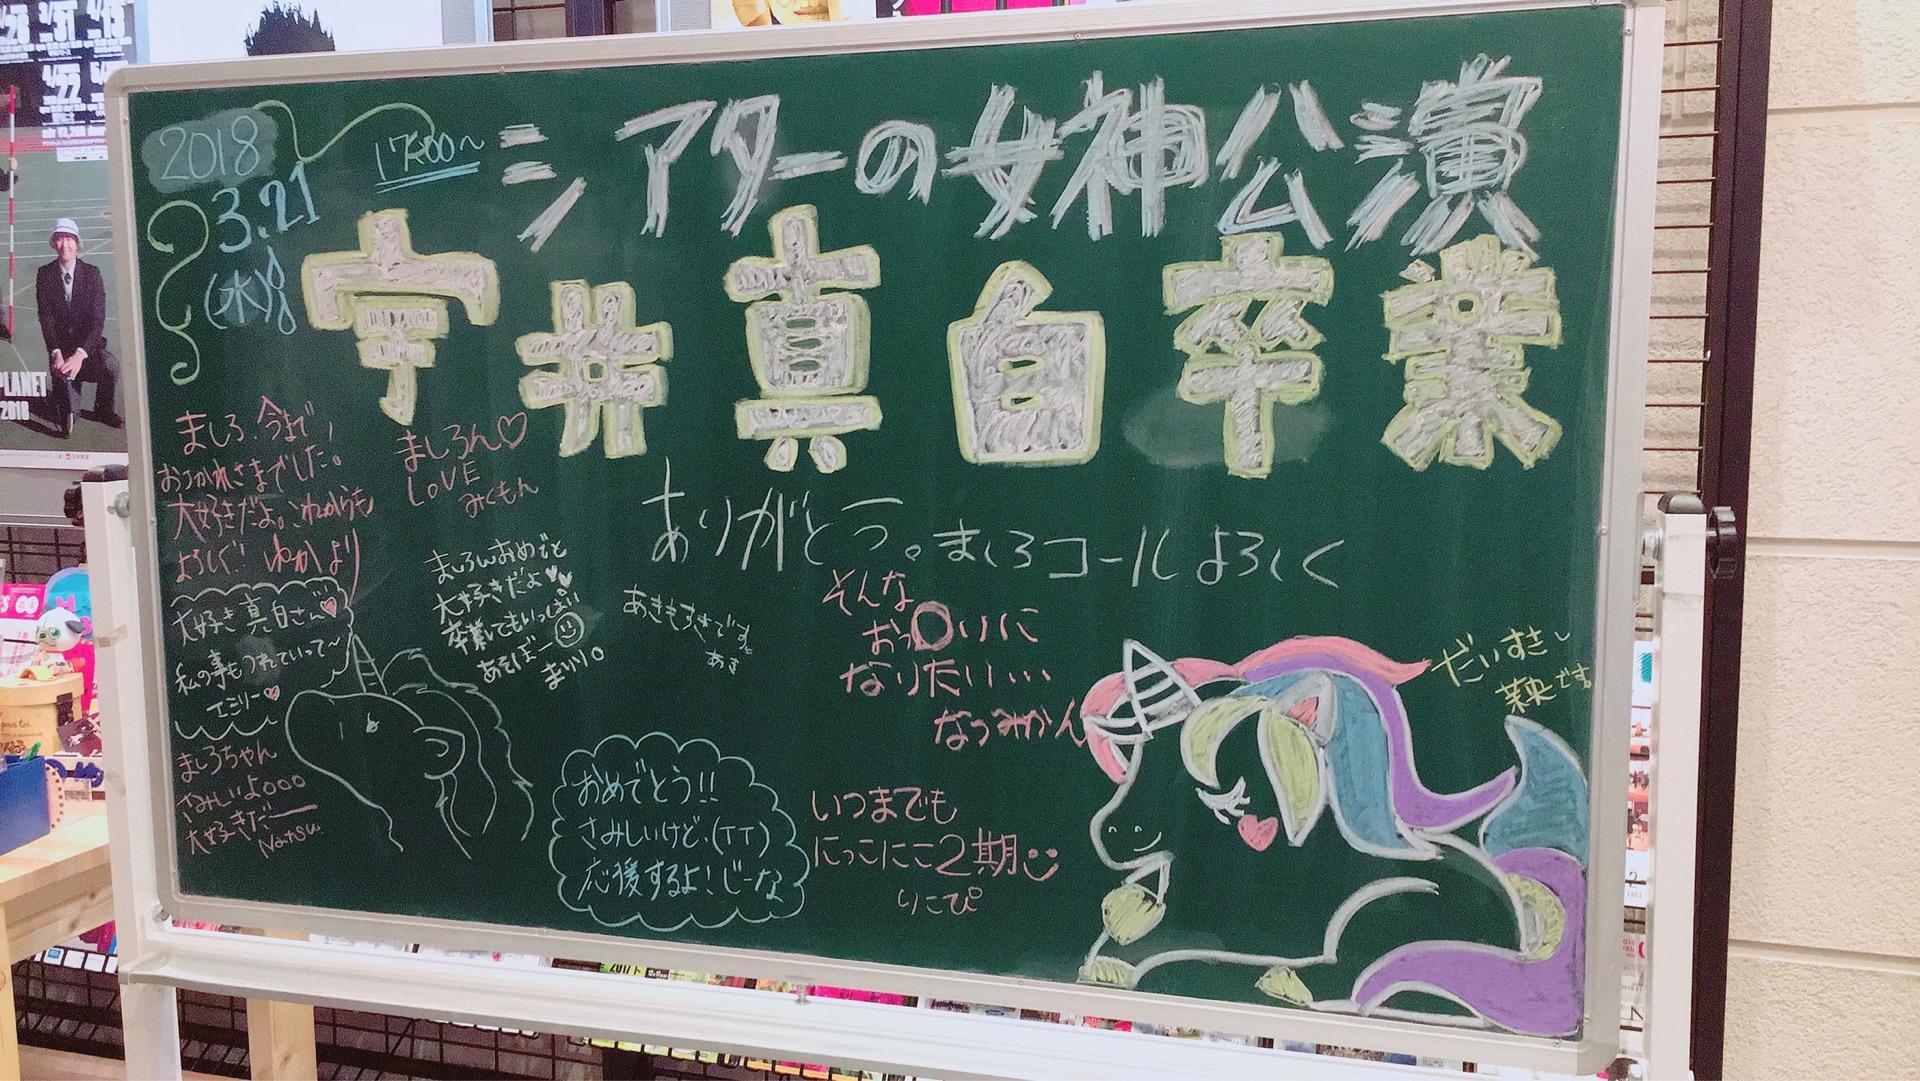 2018
3.21
(水)
17:00〜
シアターの女神公演
宇井真白卒業
ましろ、今まで、
おつかれさまでした。
大好きだよ。これからも
よろしく!! ゆかより
ましろん♡
LOVE
みくもん
ありがとう。ましろコールよろしく
ましろんおめでと
大好きだよ♥♥
卒業してもいっぱい
あそぼー
まりり。
あきもすきです。
あき
そんな
おっ〇いに
なりたい...
なつみかん
だいすき
茉央です。
大好き真白さん♥
私の事もつれていって〜
エミリー♥
ましろちゃん
さみしいよ〇〇〇
大好きだー
Natsu
おめでとう!!
さみしいけど、(TT)
応援するよ!じーな
いつまでも
にっこにこ2期
りこぴ
PLANET
2018